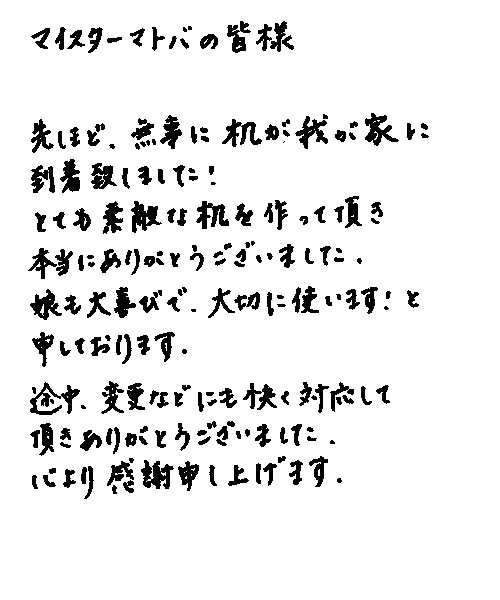 マイスターマトバの皆様
先ほど、無事に机が我が家に
到着致しました!
とても素敵な机を作って頂き
本当にありがとうございました.
娘も大喜びで、大切に使います!と
申しております.
途中、変更などにも快く対応して
頂きありがとうございました.
心より感謝申し上げます.